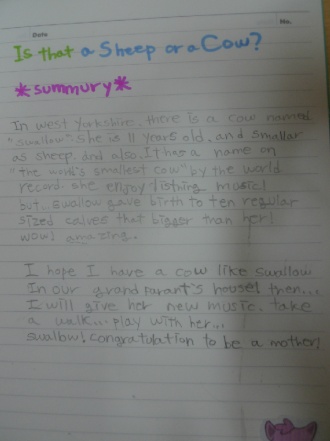 Date
No.
Is that a Sheep or a Cow?
*summury*
In west Yorkshire, there is a cow named
"swallow". she is 11 years old, and smallar
as sheep. and also. It has a name on
"the world's smallest cow" by the world
record. she enjoy listning music!
but.. swallow gave birth to ten regular
sized calves that bigger tran her!
wow! amazing.
I hope I have a cow like swallow
In our grand parant's house! then...
I will give her new music, take
a walk... play with her...
swallow! congratulation to be a mother!